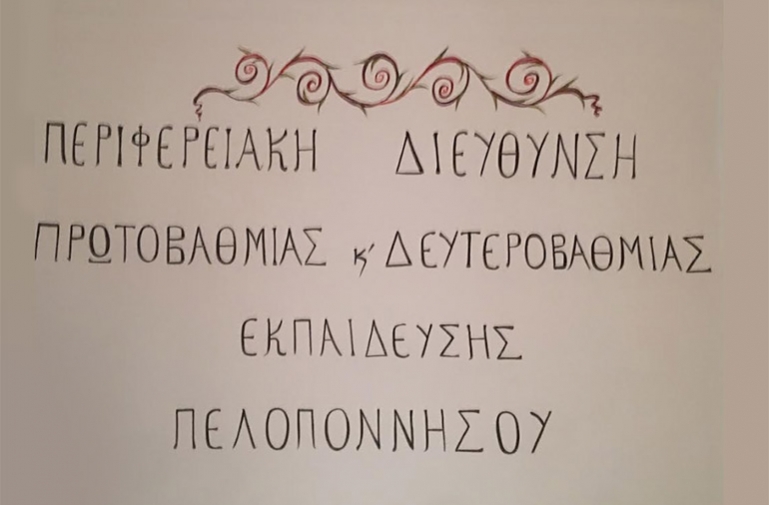 ΠΕΡΙΦΕΡΕΙΑΚΗ ΔΙΕΥΘΥΝΣΗ
ΠΡΩΤΟΒΑΘΜΙΑΣ κ' ΔΕΥΤΕΡΟΒΑΘΜΙΑΣ
ΕΚΠΑΙΔΕΥΣΗΣ
ΠΕΛΟΠΟΝΝΗΣΟΥ